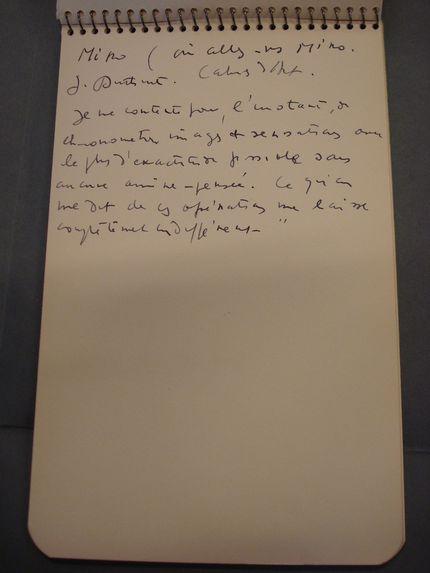 Miro (où allez-vous Miro.
J. Dutruit. Cahiers d'Art.
Je me contente pour l'instant, de
chronométrer images et sensations avec
le plus d'exactitude possible sans
aucune arrière-pensée. Ce qu'on
me dit de ces opérations me laisse
complètement indifférent. "